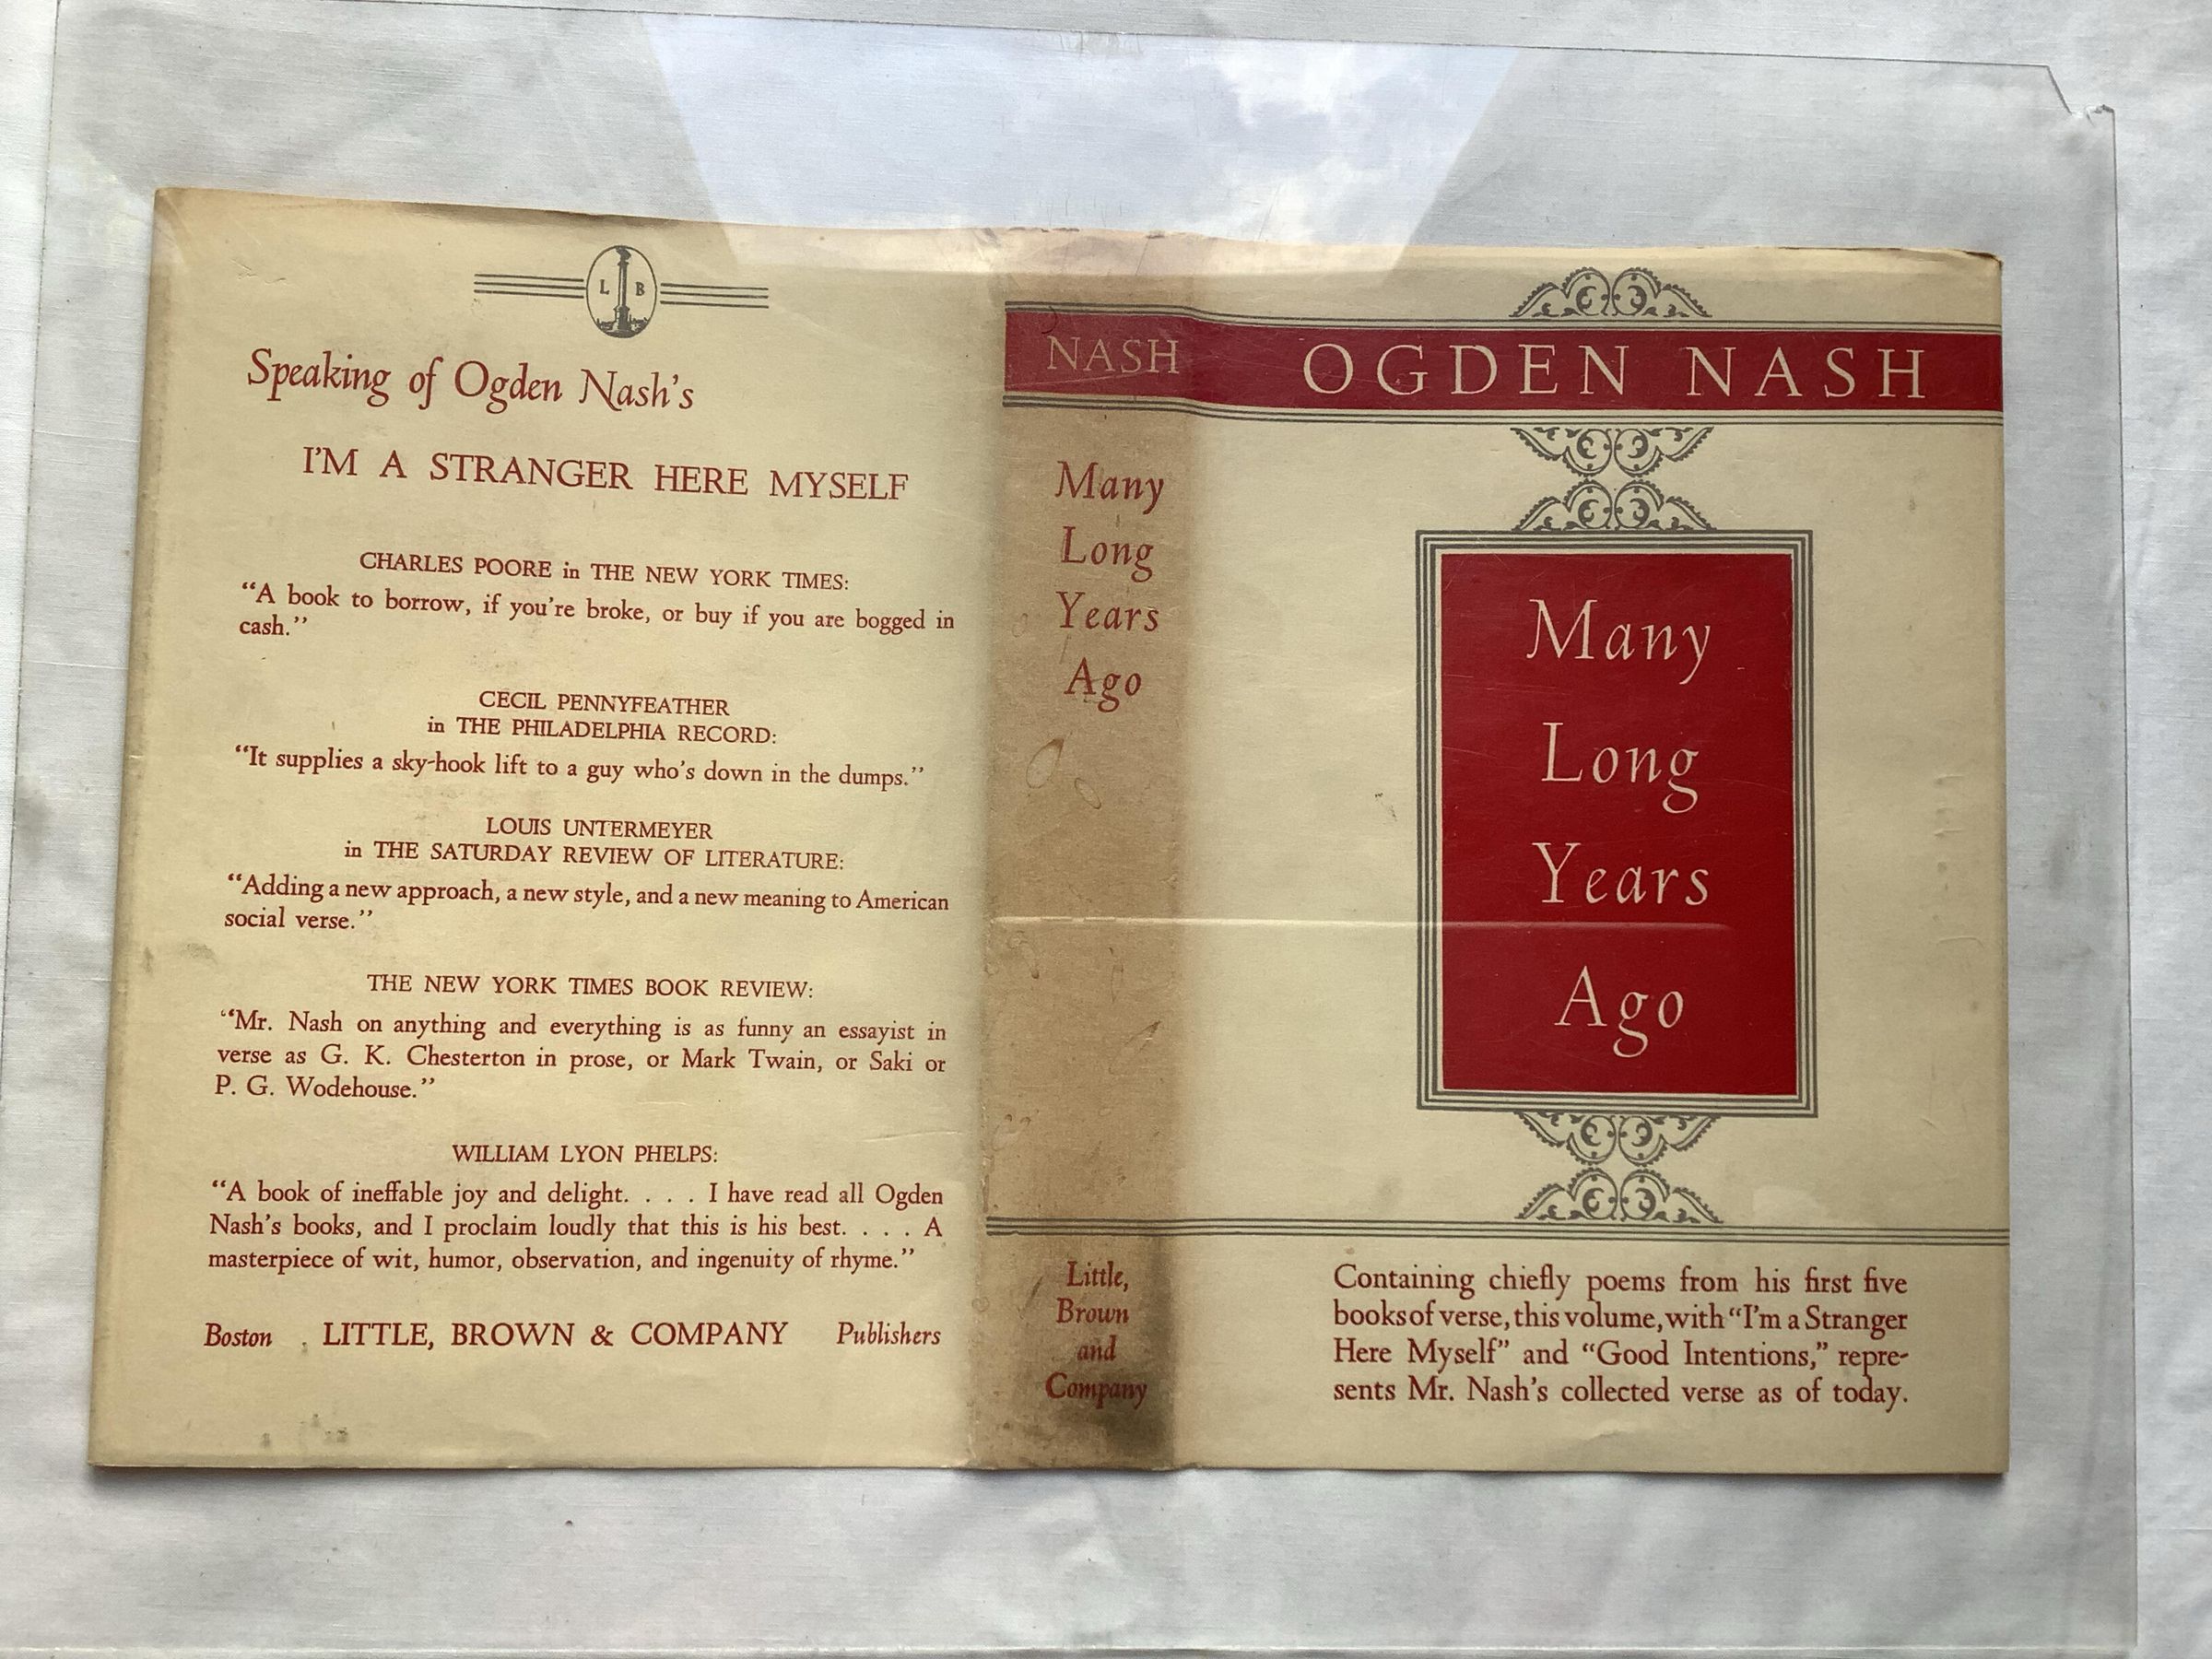 L B
Speaking of Ogden Nash's
I'M A STRANGER HERE MYSELF
CHARLES POORE in THE NEW YORK TIMES:
“A book to borrow, if you're broke, or buy if you are bogged in
cash.”
CECIL PENNYFEATHER
in THE PHILADELPHIA RECORD:
“It supplies a sky-hook lift to a guy who's down in the dumps.”
LOUIS UNTERMEYER
in THE SATURDAY REVIEW OF LITERATURE:
“Adding a new approach, a new style, and a new meaning to American
social verse.”
THE NEW YORK TIMES BOOK REVIEW:
“Mr. Nash on anything and everything is as funny an essayist in
verse as G. K. Chesterton in prose, or Mark Twain, or Saki or
P. G. Wodehouse.”
WILLIAM LYON PHELPS:
“A book of ineffable joy and delight. . . . I have read all Ogden
Nash's books, and I proclaim loudly that this is his best. . . . A
masterpiece of wit, humor, observation, and ingenuity of rhyme.”
Boston LITTLE, BROWN & COMPANY Publishers
NASH
Many
Long
Years
Ago
Little,
Brown
and
Company
OGDEN NASH
Many
Long
Years
Ago
Containing chiefly poems from his first five
books of verse, this volume, with “I'm a Stranger
Here Myself” and “Good Intentions,” repre-
sents Mr. Nash's collected verse as of today.